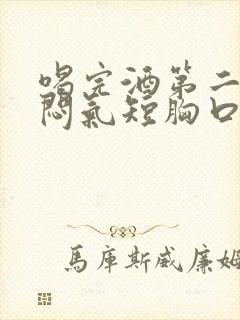 喝完酒第二
闷气短胸口
馬庫斯威廉姆